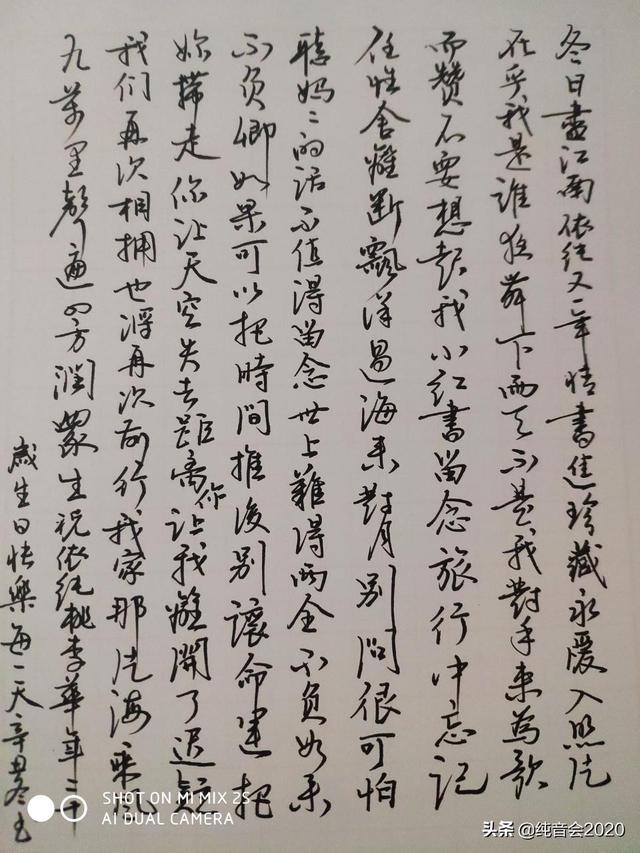 冬日盡江南依純又一年情書進珍藏永暖入熙
在乎我是誰 舞下雨天不是我對手來為歌
而贊不要想起我小紅書留念旅行中忘記
任性舍離斷飄洋過海來對月別問很可怕
聽媽〻的話不值得留念世上難得兩全不負如來
不負卿如果可以把時間推後別讓命運把
妳帶走你讓天空失去距離你讓我離開了遲疑
我们再次相拥也將再次前行我家那片海乘風
九萬里聲遍四方潤眾生祝依純桃李華年二十
歲生日快樂每一天辛丑冬
SHOT ON MI MIX 2S
AI DUAL CAMERA
头条 @纯音会2020